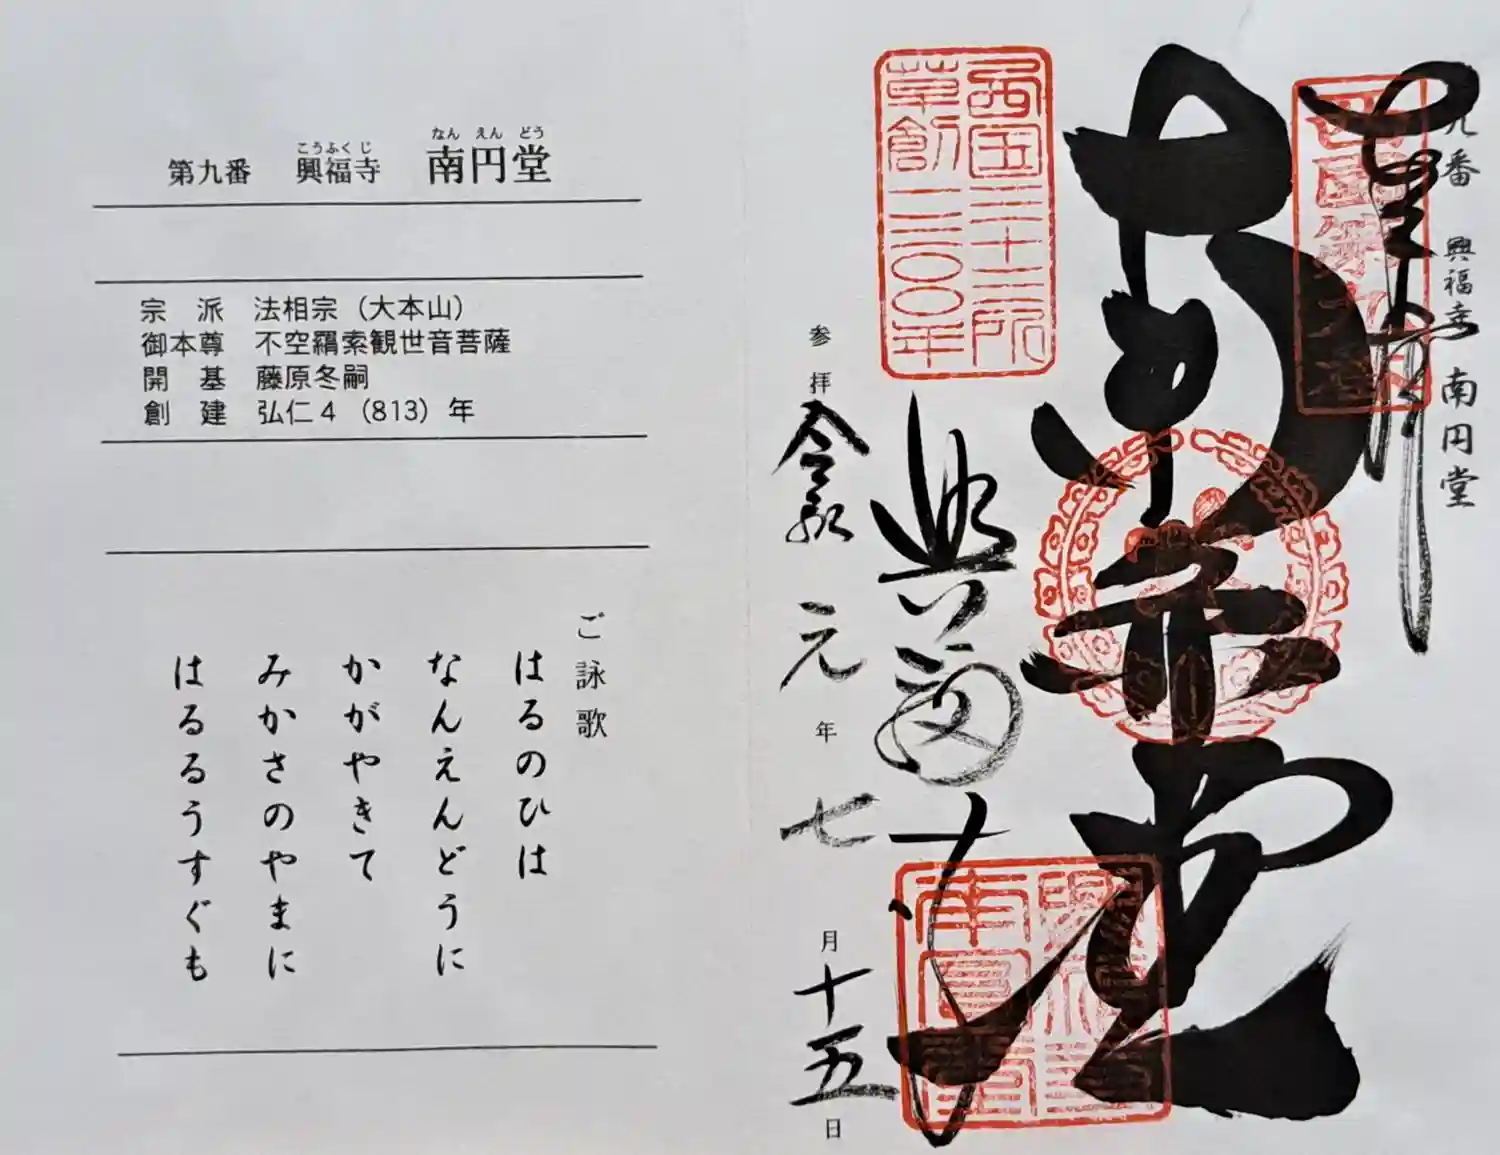 第九番 興福寺 南円堂
こうふくじ なんえんどう
宗派 法相宗（大本山）
御本尊 不空羂索観世音菩薩
開基 藤原冬嗣
創建 弘仁4（813）年
ご詠歌
はるのひは
なんえんどうに
かがやきて
みかさのやまに
はるるうすぐも
九番 興福寺 南円堂
西国第九番
西国三十三所
草創一三〇〇年
興福寺
参拝 令和元年七月十五日